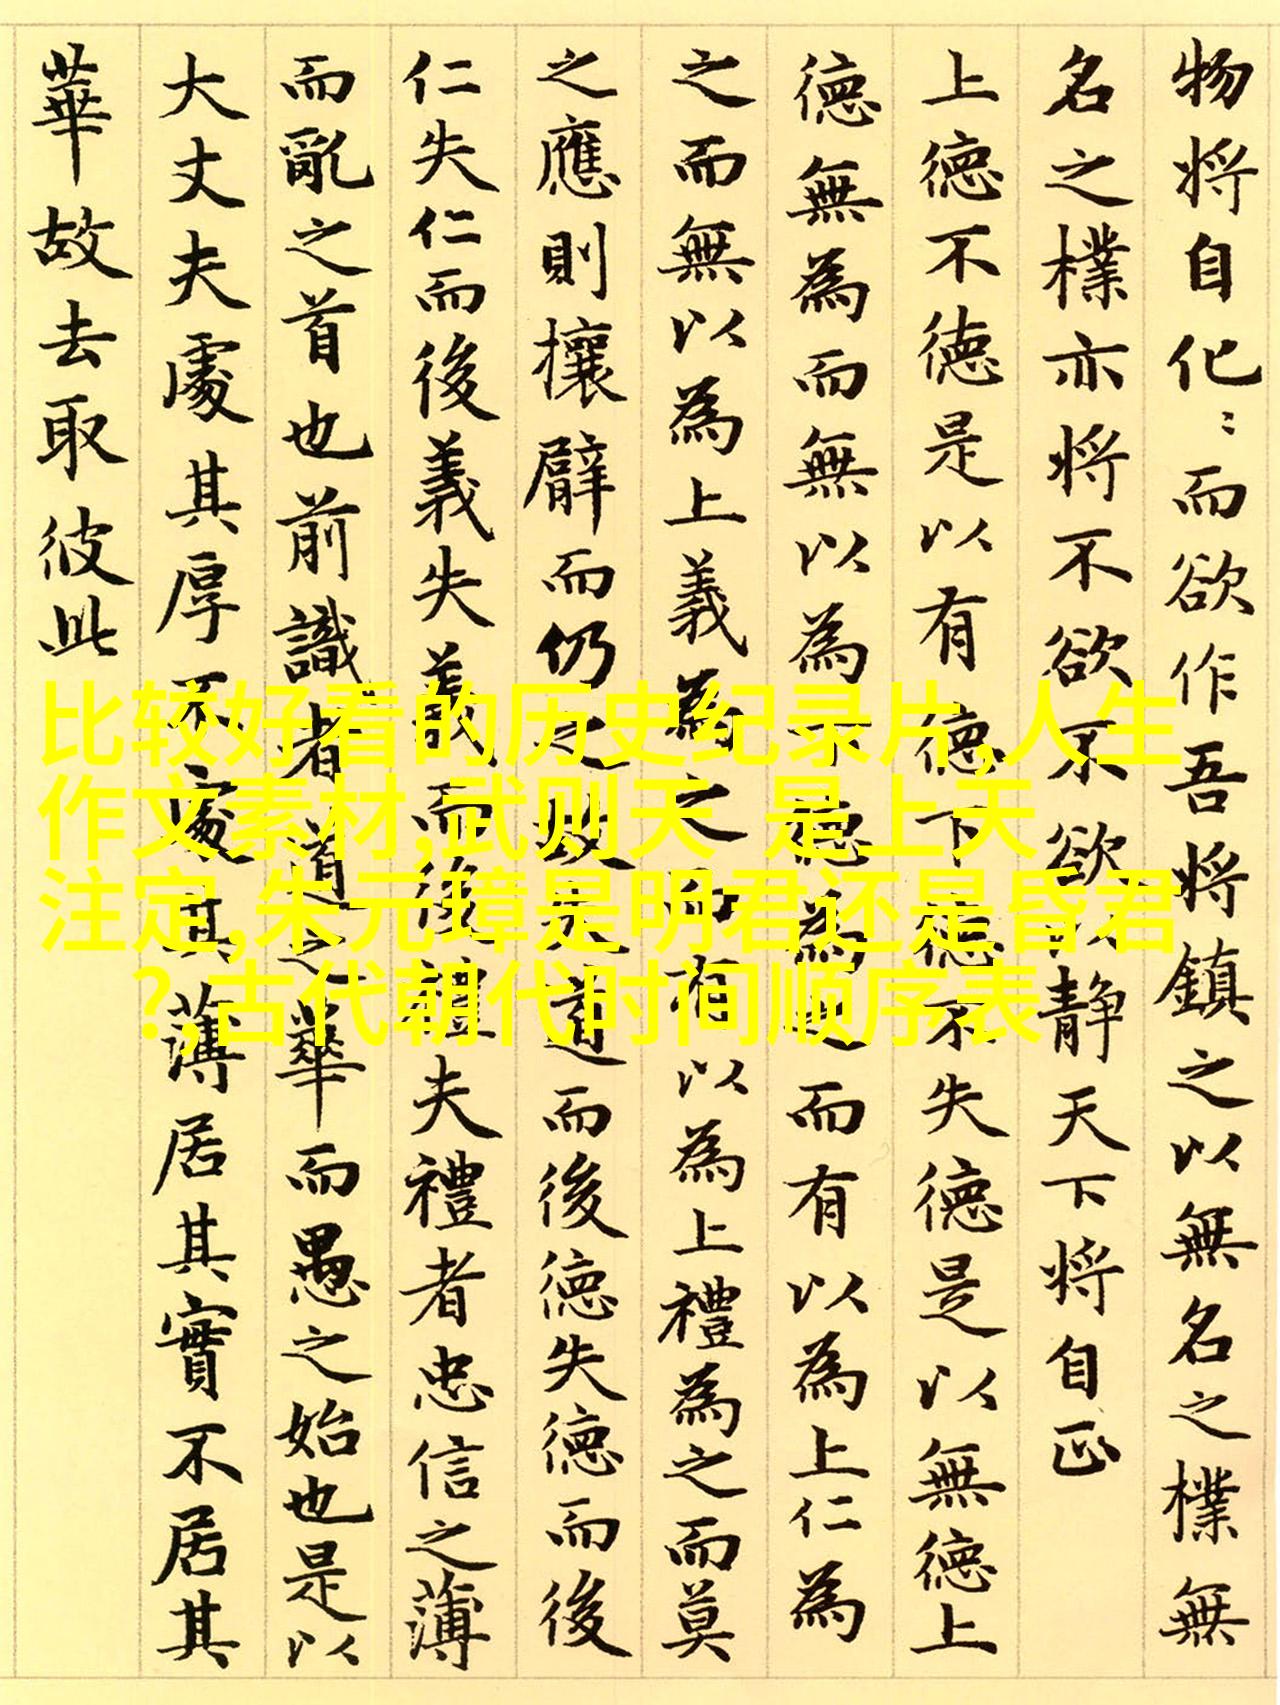 物将自化〻而欲作吾将鎮之以無名之樸無
名之樸亦将不欲不欲以静天下将自正
上徳不徳是以有徳下徳不失徳是以無徳上
徳無為而無以為下徳為之而有以為上仁為
之而無以為上義為之而有以為上禮為之而莫
之應則攘臂而仍之故失道而後徳失徳而後
仁失仁而後義失義而後禮夫禮者忠信之薄
而亂之首也前識者道之華而愚之始也是以
大丈夫處其厚不處其薄居其實不居其
華故去取彼此
比较好看的历史纪录片,人生
作文素材,武则天 是上天
注定,朱元璋是明君还是昏君
?,古代朝代时间顺序表